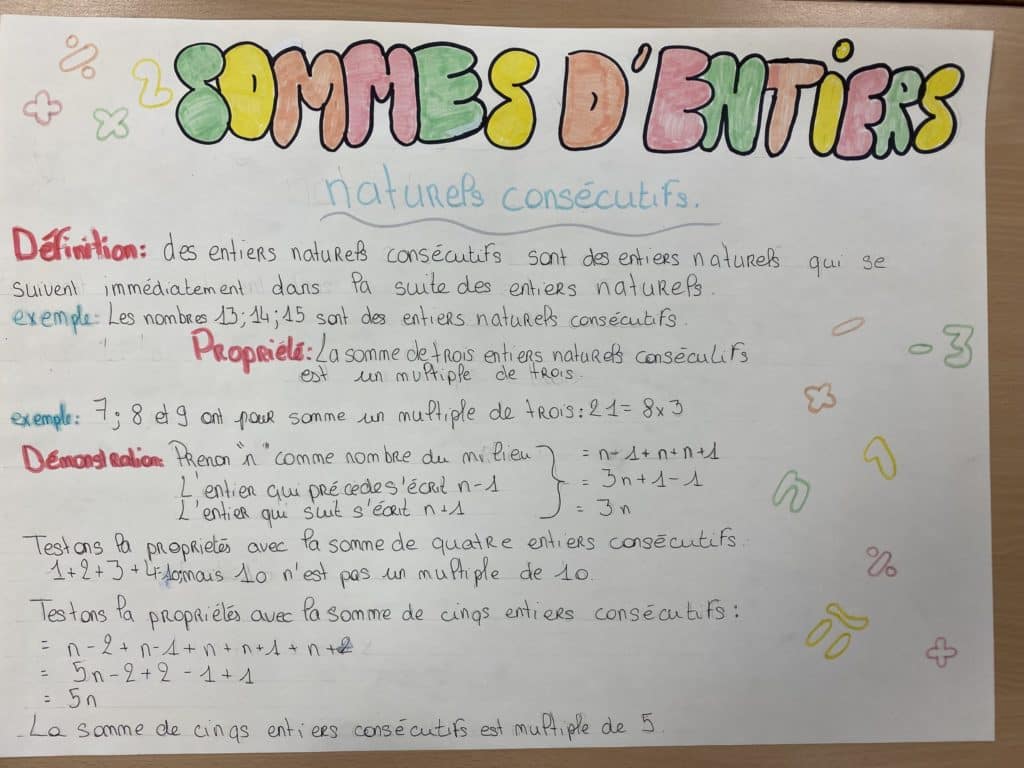 SOMMES D'ENTIERS
naturels consécutifs.
Définition: des entiers naturels consécutifs sont des entiers naturels qui se
suivent immédiatement dans la suite des entiers naturels.
exemple: Les nombres 13;14;15 sont des entiers naturels consécutifs.
Propriété: La somme de trois entiers naturels consécutifs
est un multiple de trois.
exemple: 7; 8 et 9 ont pour somme un multiple de trois: 21= 8x3
Démonstration: Prenon "n" comme nombre du milieu
L'entier qui précede s'écrit n-1
L'entier qui suit s'écrit n+1
= n-1+n+n+1
= 3n+1-1
= 3n
Testons la propriétés avec la somme de quatre entiers consécutifs.
1+2+3+4=10mais 10 n'est pas un multiple de 10.
Testons la propriétés avec la somme de cinqs entiers consécutifs:
= n-2+n-1+n+n+1+n+2
= 5n-2+2-1+1
= 5n
La somme de cinqs entiers consécutifs est multiple de 5.
% 2 + x
- 3
x
1
n
%
%
+